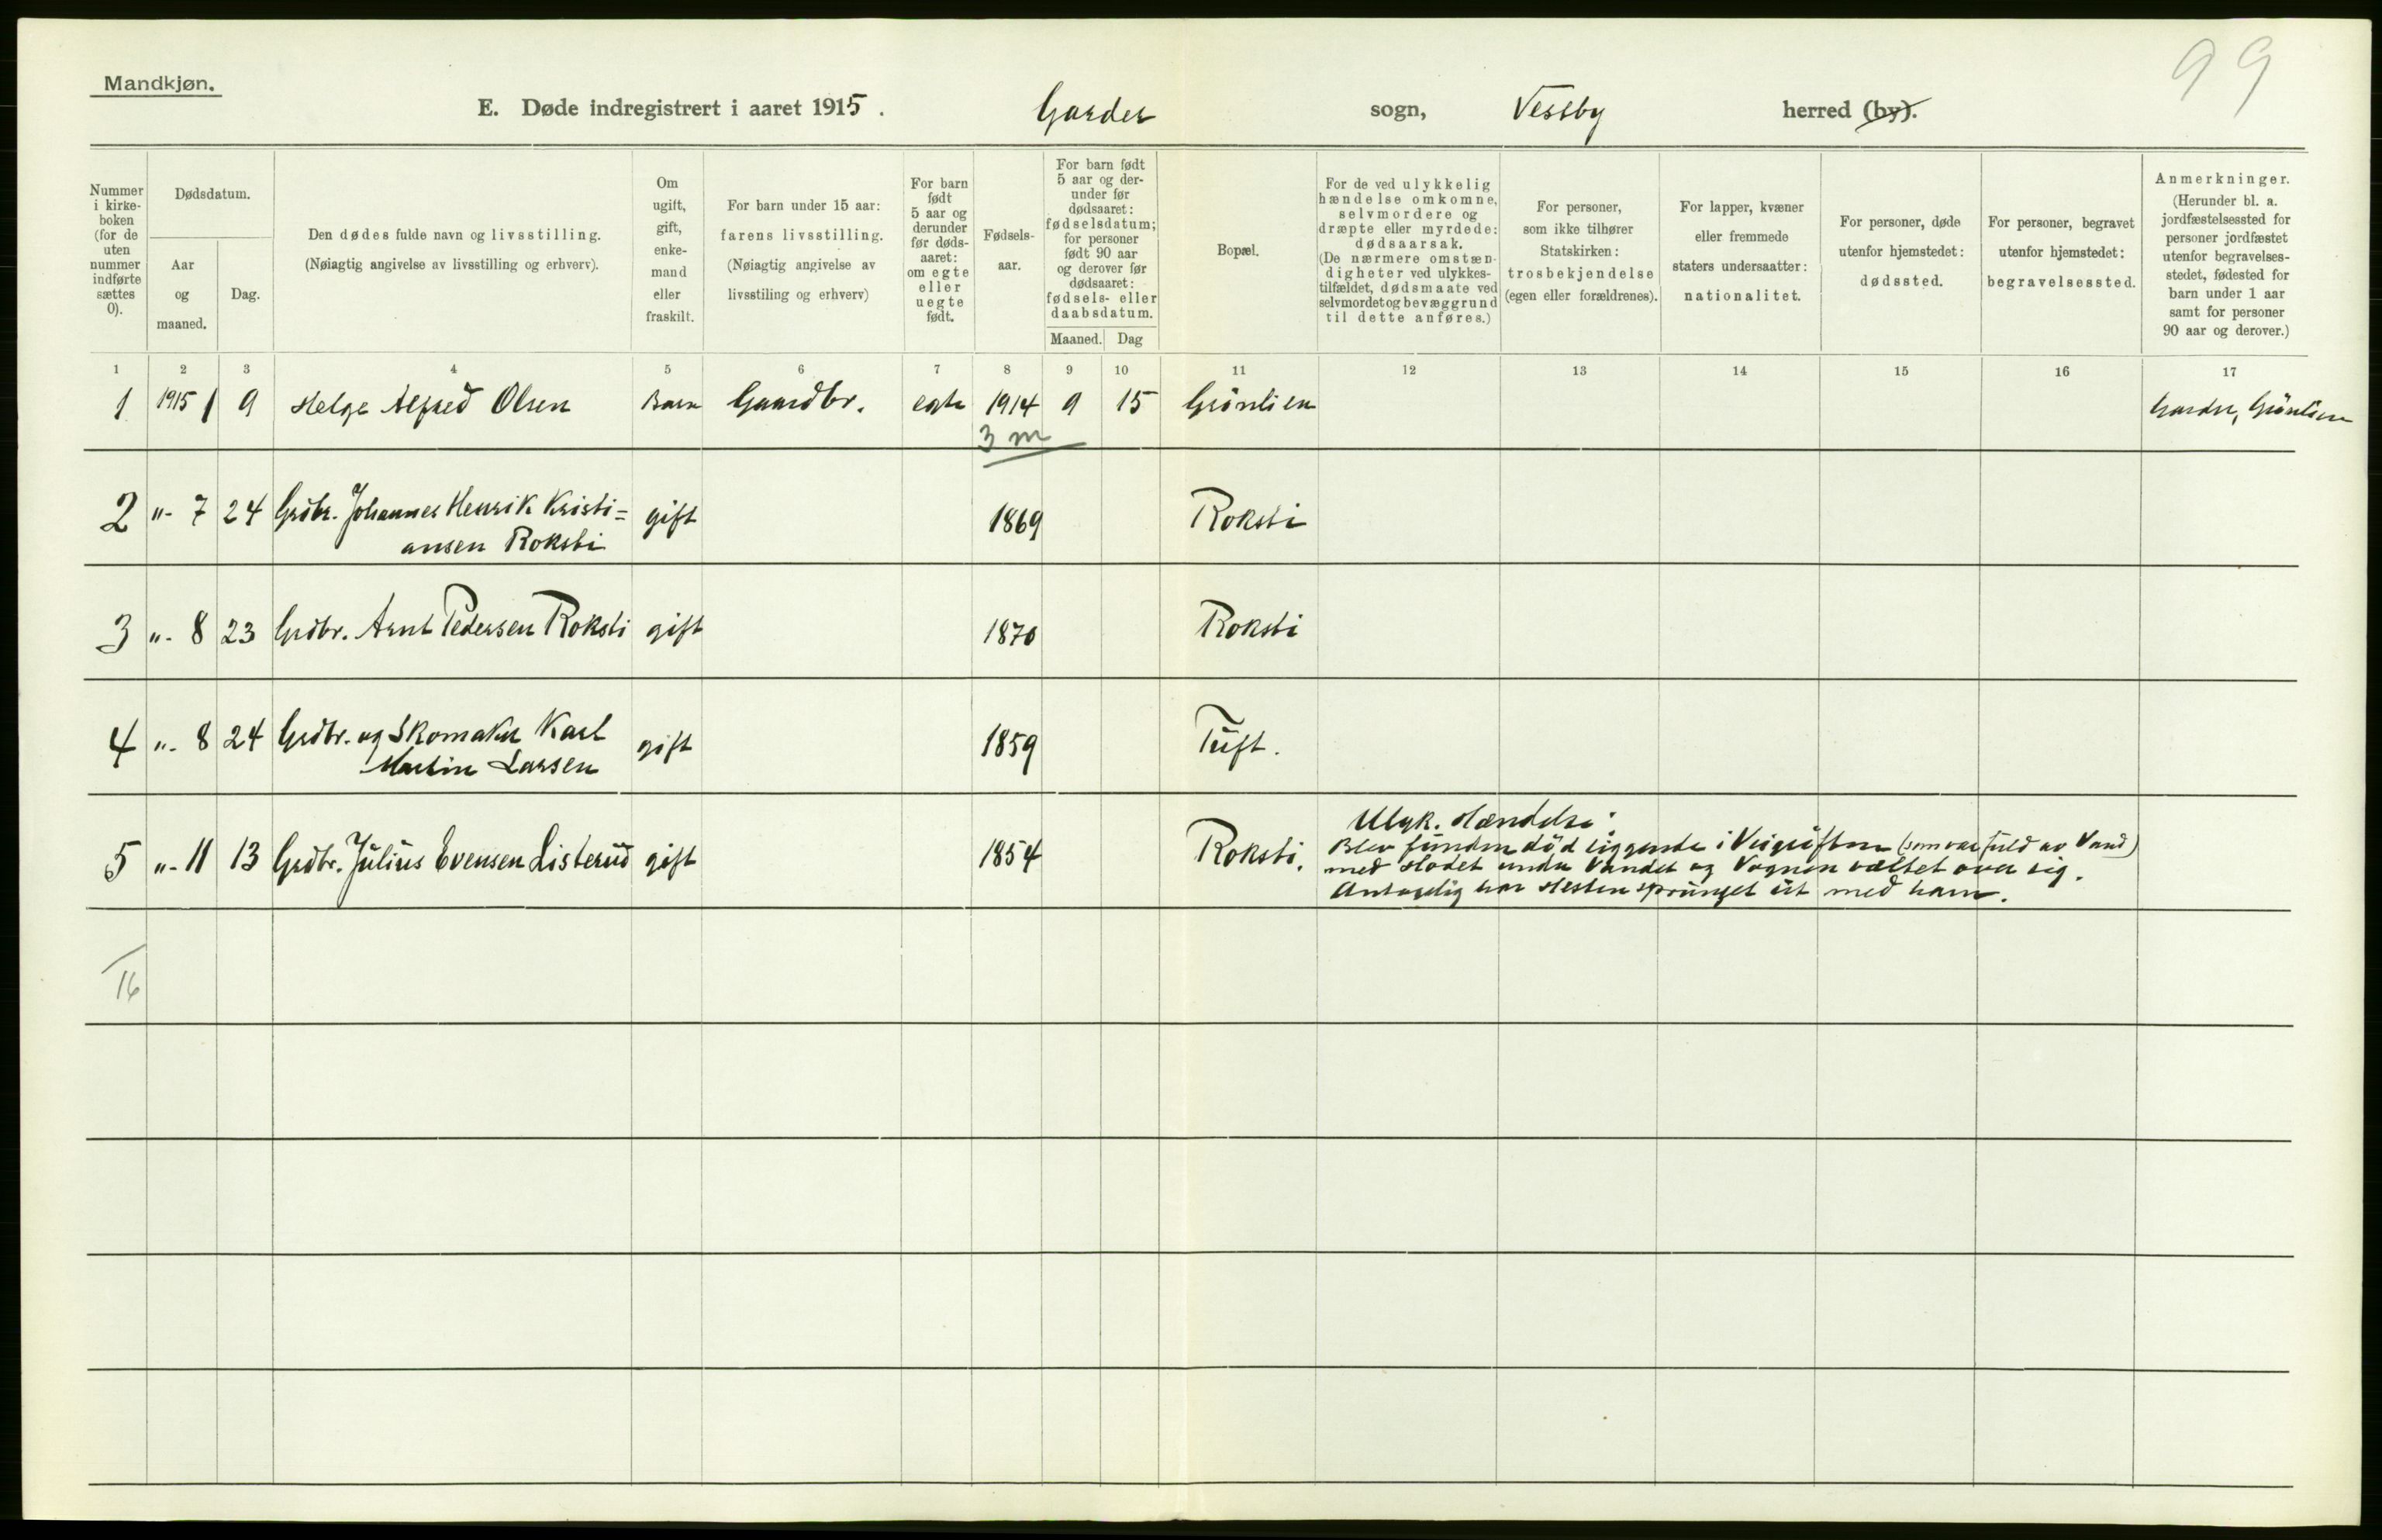 99
Mandkjøn.
E. Døde indregistrert i aaret 1915. Garder sogn, Vestby herred (by).
Nummer i kirke- boken (for de uten nummer indførte sættes 0).
Dødsdatum.
Aar og maaned.
Dag.
Den dødes fulde navn og livsstilling.
(Nøiagtig angivelse av livsstilling og erhverv).
Om ugift, gift, enke- mand eller fraskilt.
For barn under 15 aar: farens livsstilling.
(Nøiagtig angivelse av livsstiling og erhverv)
For barn født 5 aar og derunder før døds- aaret: om egte eller uegte født.
Fødsels- aar.
For barn født 5 aar og der- under før dødsaaret: fødselsdatum; for personer født 90 aar og derover før dødsaaret: fødsels- eller daabsdatum.
Maaned. Dag
Bopæl.
For de ved ulykkelig hændelse omkomne, selvmordere og dræpte eller myrdede: dødsaarsak.
(De nærmere omstæn- digheter ved ulykkes- tilfældet, dødsmaate ved selvmordet og bevæggrund til dette anføres.)
For personer, som ikke tilhører Statskirken: trosbekjendelse (egen eller forældrenes).
For lapper, kvæner eller fremmede staters undersaatter: nationalitet.
For personer, døde utenfor hjemstedet: dødssted.
For personer, begravet utenfor hjemstedet: begravelsessted.
Anmerkninger.
(Herunder bl. a. jordfæstelsessted for personer jordfæstet utenfor begravelses- stedet, fødested for barn under 1 aar samt for personer 90 aar og derover.)
1 2 3 4 5 6 7 8 9 10 11 12 13 14 15 16 17
1 1915 1 9 Helge Alfred Olsen Barn Gaardbr. egte 1914 9 15 Grönlien Garder, Grönlien
3 m
2 "- 7 24 Grdbr. Johannes Henrik Kristi= gift 1869 Roksti
ansen Roksti
3 "- 8 23 Grdbr. Arnt Pedersen Roksti gift 1870 Roksti
4 "- 8 24 Grdbr. og Skomaker Karl gift 1859 Tuft.
Martin Larsen
5 "- 11 13 Grdbr. Julius Evensen Listerud gift 1854 Roksti.
Ulyk. Hændelse:
Blev funden död liggende i Veigröften (som var fuld av Vand)
med Hodet under Vandet og Vognen væltet over sig.
Antagelig har Hesten sprunget ut med ham.
/16